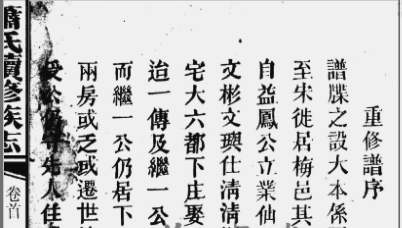 重修譜序
譜牒之設大本係
至宋徙居梅邑其
自益鳳公立業仙
文彬文璵仕清清
宅大六都下庄娶
迨一傳及繼一公
而繼一公仍居下
兩房或乏或遷世
公仍守先人住
蕭氏續修族志
卷首